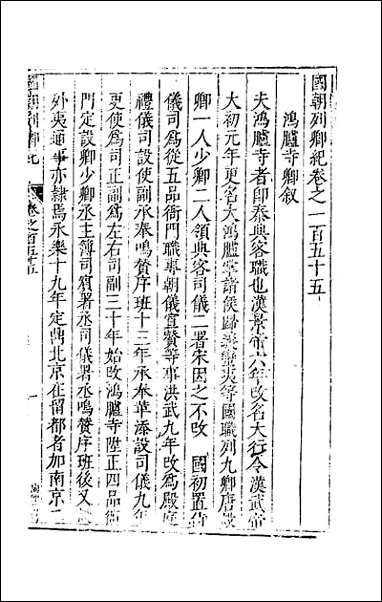 國朝列卿紀卷之一百五十五
鴻臚寺卿叙
夫鴻臚寺者即秦典客職也漢景帝六年改名大行令漢武帝
大初元年更名大鴻臚掌諸侯歸義蠻夷等國職列九卿唐設
卿一人少卿二人領典客司儀二署宋因之不改 國初置侍
儀司爲從五品衙門職專朝儀宣贊等事洪武九年改爲殿庭
禮儀司設使副承奉鳴贊序班十三年承奉革添設司儀九年
更使爲司正副爲左右司副三十年始改鴻臚寺陞正四品衙
門定設卿少卿丞主簿司賓署丞司儀署丞鳴贊序班後又
外夷通事亦隷焉永樂十九年定鼎北京在留都者加南京二
國朝列卿紀
卷之百五十五
一